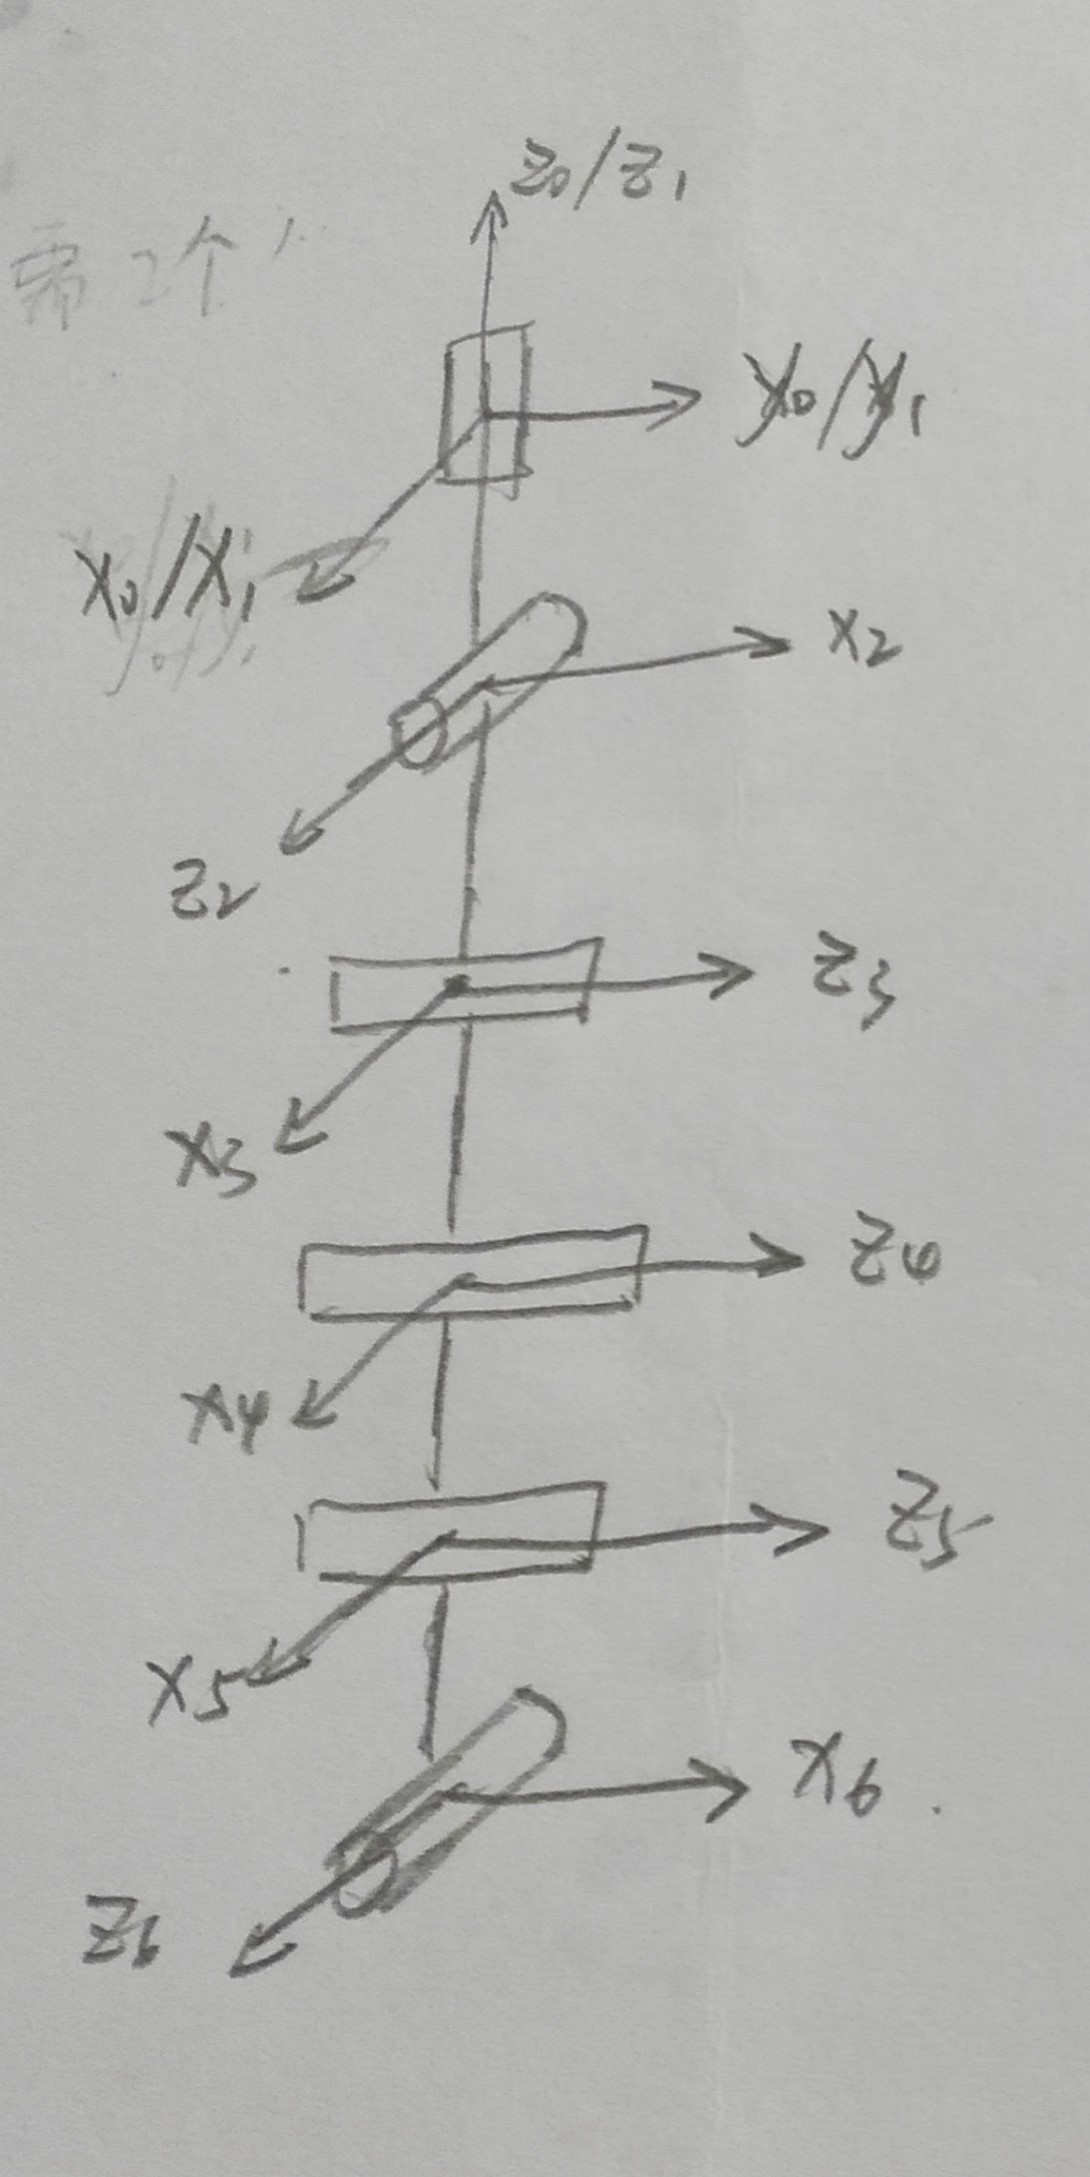 Z0/Z1
2个
y0/y1
X0/X1
X2
Z2
Z3
X3
Z4
X4
Z5
X5
X6
Z6